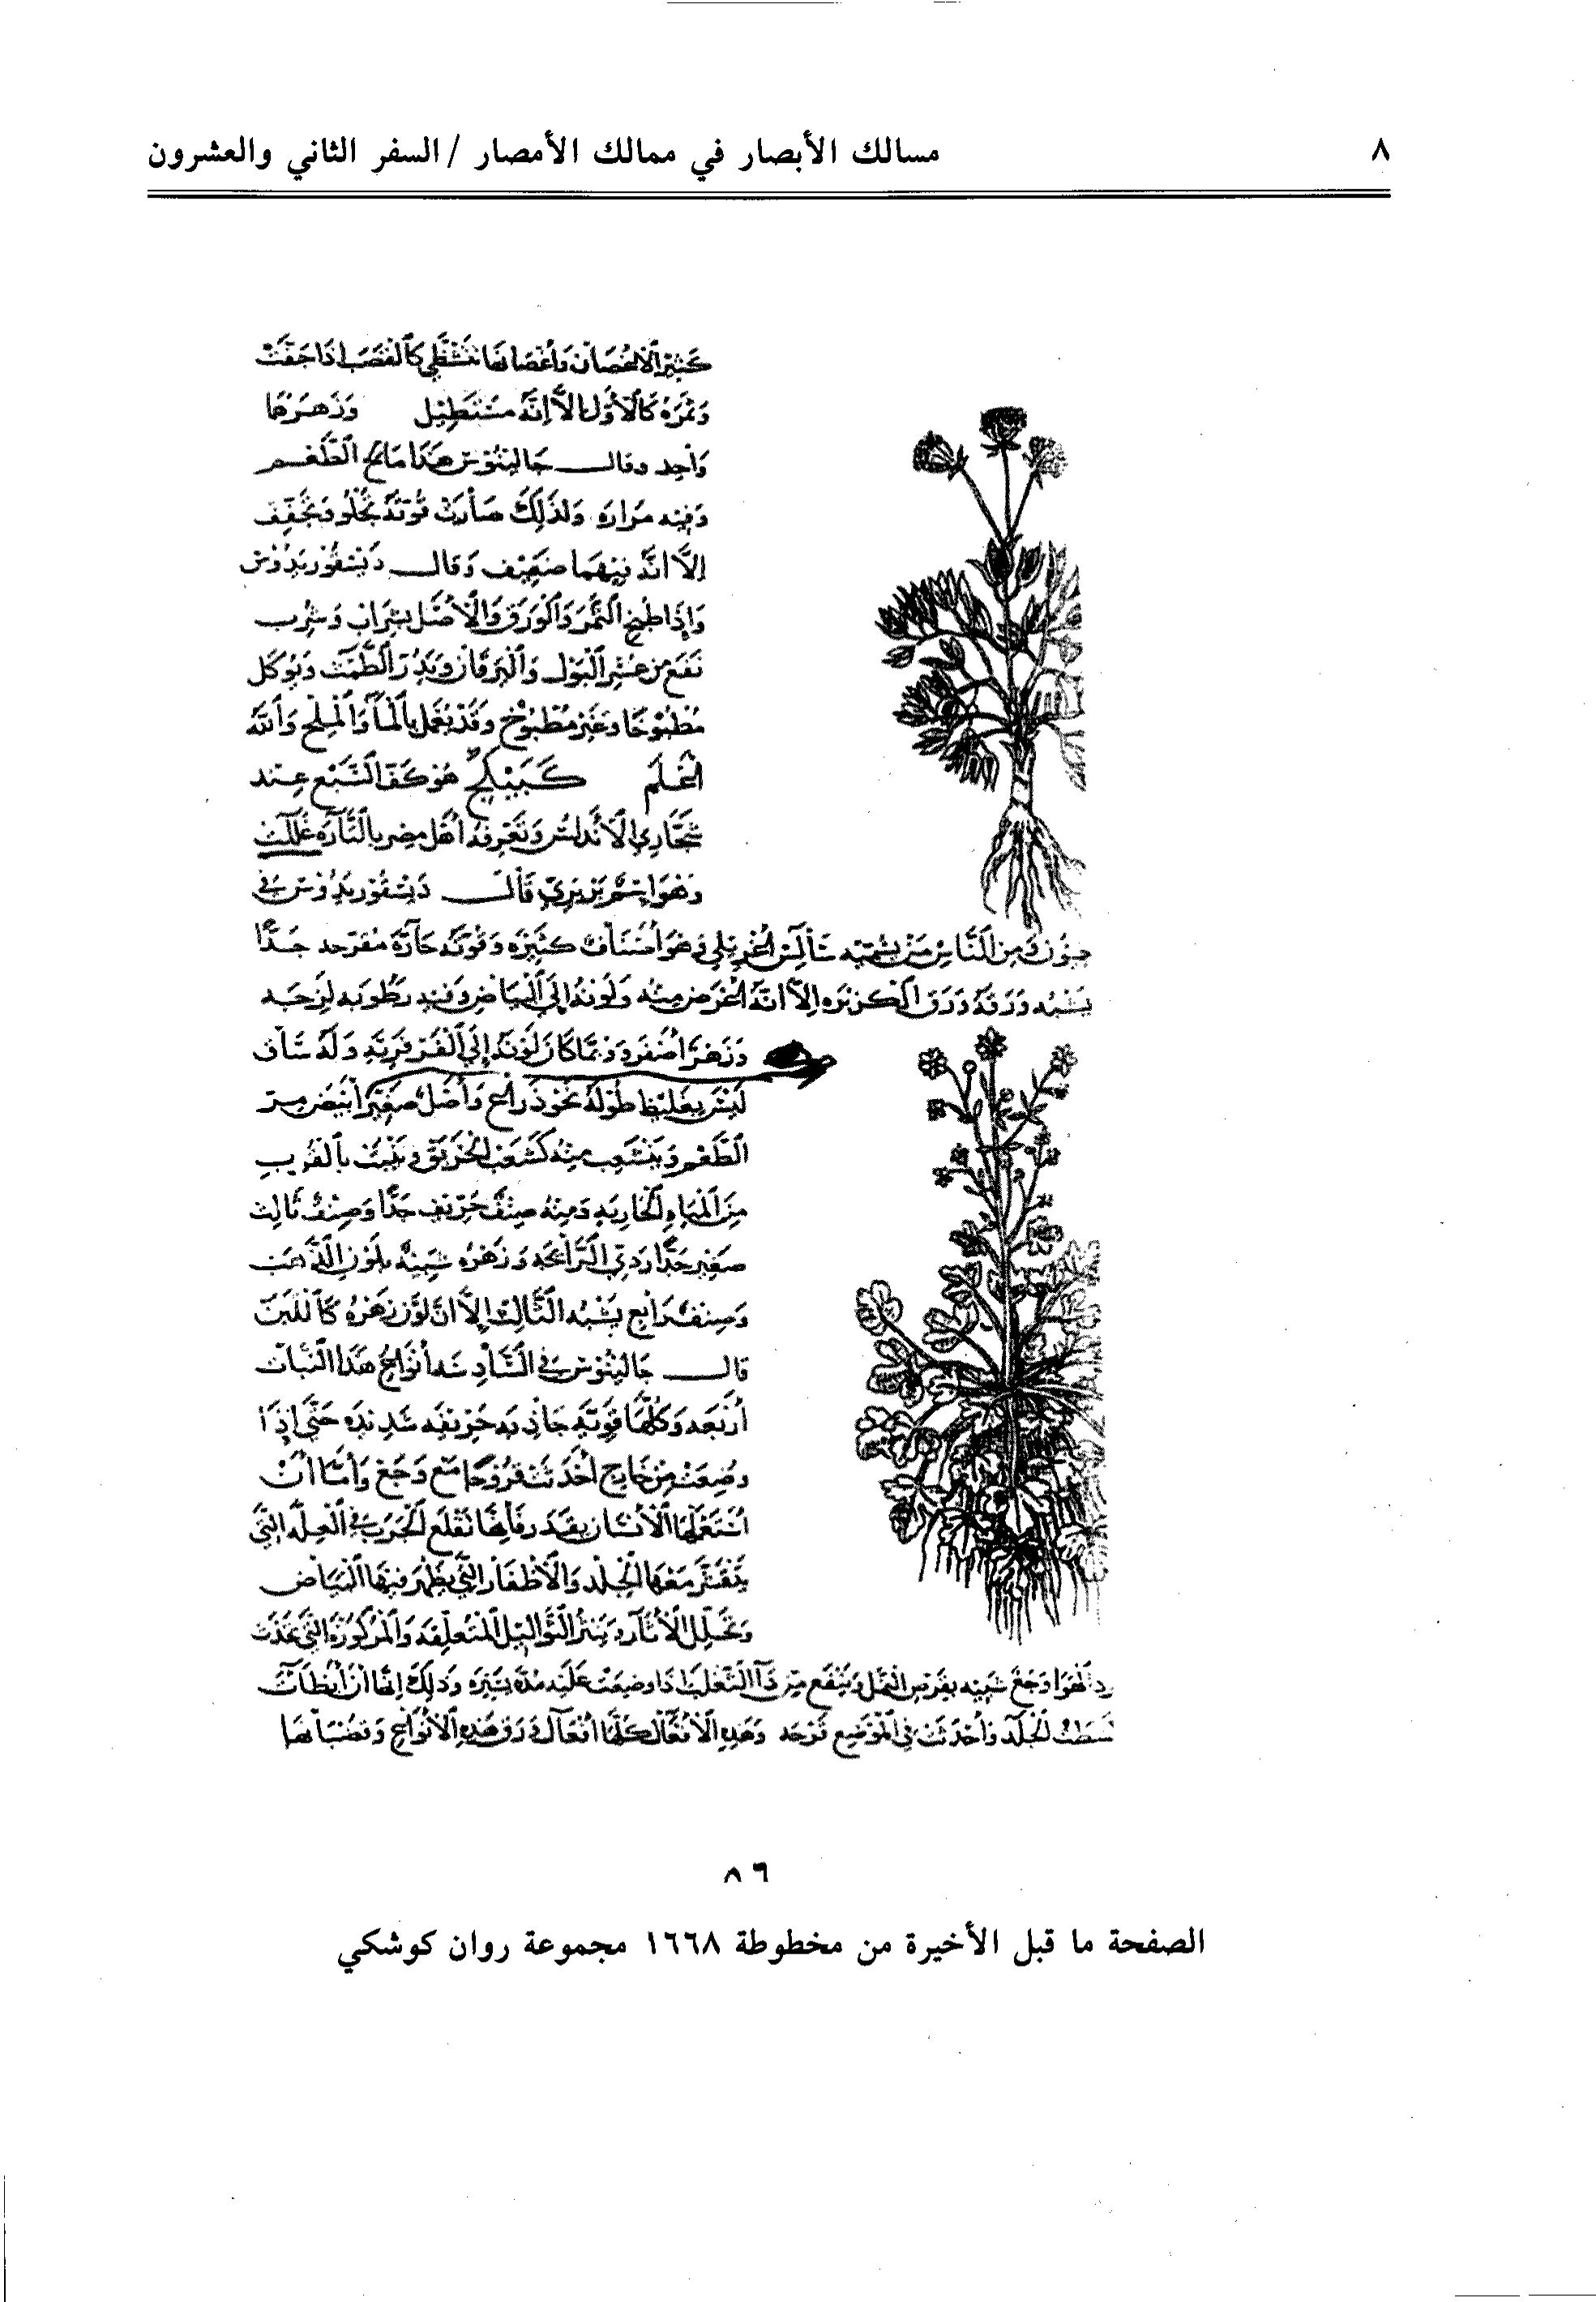 ٨
مسالك الأبصار في ممالك الأمصار / السفر الثاني والعشرون
كَثيْر الأغصان وَأغصانها تتشظّى كالقصَب اذا جَفّتْ
وَثمرَهُ كالأوّل إلاّ انّه مستطِيْل وَزهرهُا
وَاحِد وقال جَاليْنُوْس هَذا مَالح الطَّعْم
وَفيْه مرَارة وَلذَلِكَ صَارت قُوّته تجْلُو وَتجُفّف
إلاَّ انَّه فيْهمَا ضعيْف وَقال دَيْسقُوْريْدُوْس
وَإذَا طُبخ الثّمَر وَالوَرَق وَالأصْل بشرَاب وَشُرب
نفع مِن عُسْر البَوْل وَاليَرقان وَيدُر الطّمْث وَيُوكل
مَطْبُوْخًا وَغيْر مَطْبُوْخ وَقد يُعْمل بالماَء وَالملْح وَالله
اعْلم كَبَيْكَج هُوَ كَفّ السَّبُع عِنْد
شَجّاري الأنْدَلُس وَتعْرفه أهْل مِصْر بالنَّارة غلات
وَهُوَ اسْم بَرْبَريّ قَال دَيْسقُوْريْدُوْس في
وَمِن النَّاس مَن يسمّيه سَالس اغريلي وَهوَ أصْنَاف كثيْرَة وَقوّته حَارّة مقرّحه جدًّا
يُشْبه وَرَقهُ وَرَق الكزْبرَه إلاّ أنّهُ أعْرَض مِنْه وَلوْنهُ إلى البيَاض وَفيْه رُطُوبَه لزجَه
وَزَهْرَ أصْفر وَربّما كان لوْنهُ إلى الفرْفرِيّه وَلهُ سَاق
لَيْسَ بغَليْظ طوْلهُ نحْو ذراع وَأصْلٌ صَغيْر أبْيَض مر
الطّعْم وَيَتشعّب مِنْه كَشعَب الخرْبَق وَينْبت بالقُرب
مِنَ الميَاه الجَاريَه وَمنْه صِنْف حِرّيف جدًّا وَصِنْف ثالث
صغيْر جدًّا رَديّ الرّائحَه وَزهْرهُ شبِيْه بلَون الذّهَب
وَصنف رَابع يُشْبه الثَّالث إلاّ ان لوْن زهْره كاللبَن
قال جَاليْنُوْس في السَّادسَه أنْوَاعُ هَذا النّبَات
أرْبَعه وَكلّها قوّته حَادّه حِرّيفه شَديْده حَتّى إذَا
وُضِعَتْ مِنْ خَارج أحْدَثت قرُوْحًا مَع وَجَع وَأمّا ان
اسْتَعْملهَا الانْسَان بقدر فإنّهَا تقلَع الجَرَب في العِلّه التي
يَتقشّر مَعَها الجِلْد وَالأظْفَار التي يظْهر فيْهَا البَيَاض
وَتحلّل الأثَار وَينثر الثّآليْل المتعلّقه وَالمَركوْزَة التي يحْدث
برد الهَوَا وَجَعٌ شبيْه بقَرْص النّمْل وَينْفع مِن دَاء الثّعْلب إذَا وضِعَت عَليه مُدَّه يسِيْرَه وَذلك إنّها ان أبْطأَتْ
كَشَطتْ الجلْد وَأحْدَثت في المَوْضع قرْحَه وَهَذه الأفْعَال كلّها أفْعَال وَرَق هَذه الأنْوَاع وَقضْبَانهَا
٨٦
الصفحة ما قبل الأخيرة من مخطوطة ١٦٦٨ مجموعة روان كوشكي